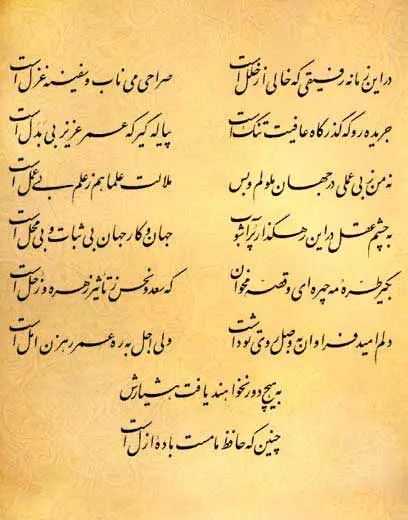 در این زمانه رفیقی که خالی از خلل است صراحی می ناب و سفینه غزل است
جریده رو که گذرگاه عافیت تنگ است پیاله گیر که عمر عزیز بی بدل است
نه من ز بی عملی در جهان ملولم و بس ملالت علما هم ز علم بی عمل است
به چشم عقل در این رهگذار پرآشوب جهان و کار جهان بی ثبات و بی محل است
بگیر طره مه چهره ای و قصه مخوان که سعد و نحس ز تاثیر زهره و زحل است
دلم امید فراوان به وصل روی تو داشت ولی اجل به ره عمر رهزن امل است
به هیچ دور نخواهند یافت هشیارش
چنین که حافظ ما مست باده ازل است